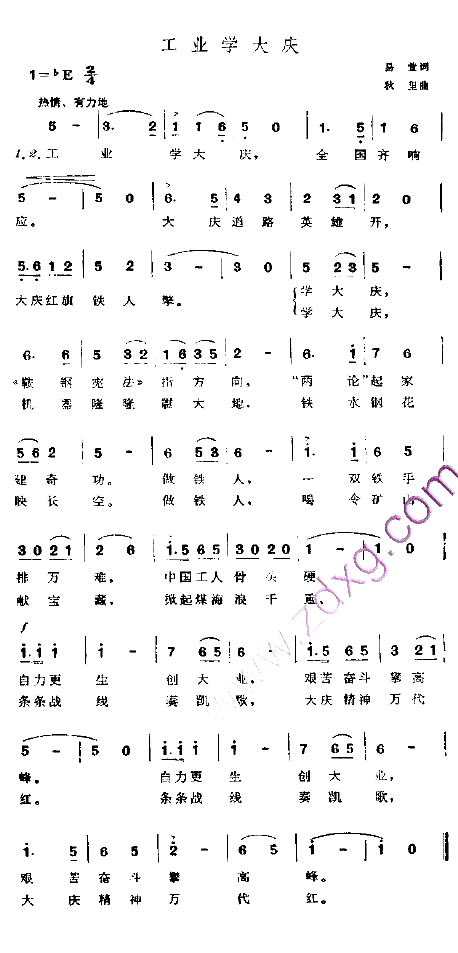 工业学大庆
1=♭E 2/4
易萱词
秋里曲
热情、有力地
5 - | 3. 2 | 1 1 6 5 | 1. 5 | 1 6
1.2.工 业 学大 庆， 全 国齐响
5 - | 5 0 | 6. 5 | 4 3 | 2 3 1 | 2 0
应。 大 庆道路英雄开，
5.6 1 2 | 5 2 | 3 - | 3 0 | 5 2 3 | 5 -
大庆红旗铁人擎。 学大庆，
学大庆，
6. 6 | 5 3 2 | 1 6 3 5 | 2 - | 6. i | 7 6
《鞍钢宪法》指方向，“两论”起家
机器隆隆震大地，铁水钢花
5 6 2 | 5 - | 6 5 3 | 6 - | i. i | 6 5
建奇功。做铁人，一双铁手
映长空。做铁人，喝令矿山
3 0 2 1 | 2 6 | i.5 6 5 | 3 0 2 0 | 1 - | 1 0
排万难，中国工人骨头硬
献宝藏，掀起煤海浪千重，
f
i.i i | i - | 7 6 5 | 6 - | i.5 6 5 | 3 2 1
自力更生创大业，艰苦奋斗攀高
条条战线奏凯歌，大庆精神万代
5 - | 5 0 | i.i i | i - | 7 6 5 | 6 -
峰。自力更生创大业，
红。条条战线奏凯歌，
i. 5 | 6 5 | 2 - | 6 5 | i - | i 0
艰苦奋斗攀高峰。
大庆精神万代红。
www.zdxg.com